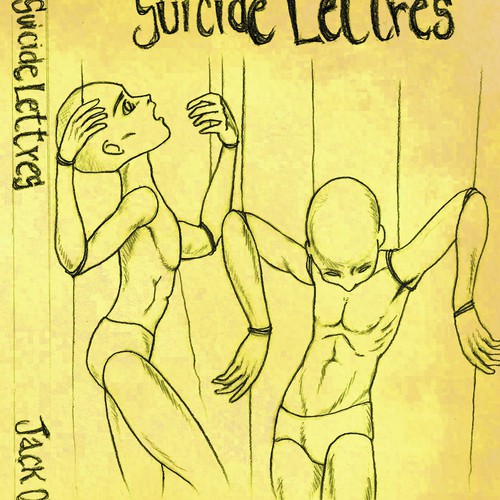 Suicide Lettres
Suicide Lettres
Jack O